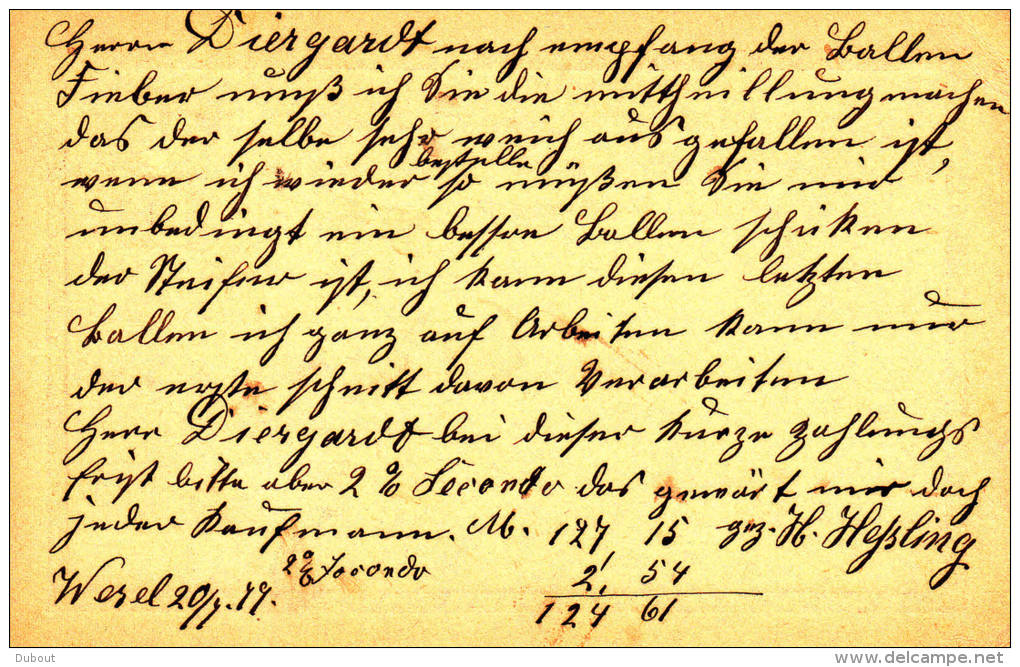 Herrn Diergardt nach empfang der Ballen
Fieber muß ich Sie die mittheillung machen
das der selbe sehr weich aus gefallen ist,
wenn ich wieder bestelle so müßen Sie mir
unbedingt ein bessre Ballen schicken
der Steifer ist, ich kann diesen letzten
Ballen ich ganz auf Arbeiten kann nur
der erste schnitt davon Verarbeiten
Herr Diergardt bei dieser kurze Zahlungs
frist bitte aber 2 % Secondo das gewärt mir doch
jeder Kaufmann. M. 127, 15 gez. H. Heßling
2 % Secondo 2, 54
Wesel 20/7. 79. 124 61
Dubout
http://www.delcampe.net